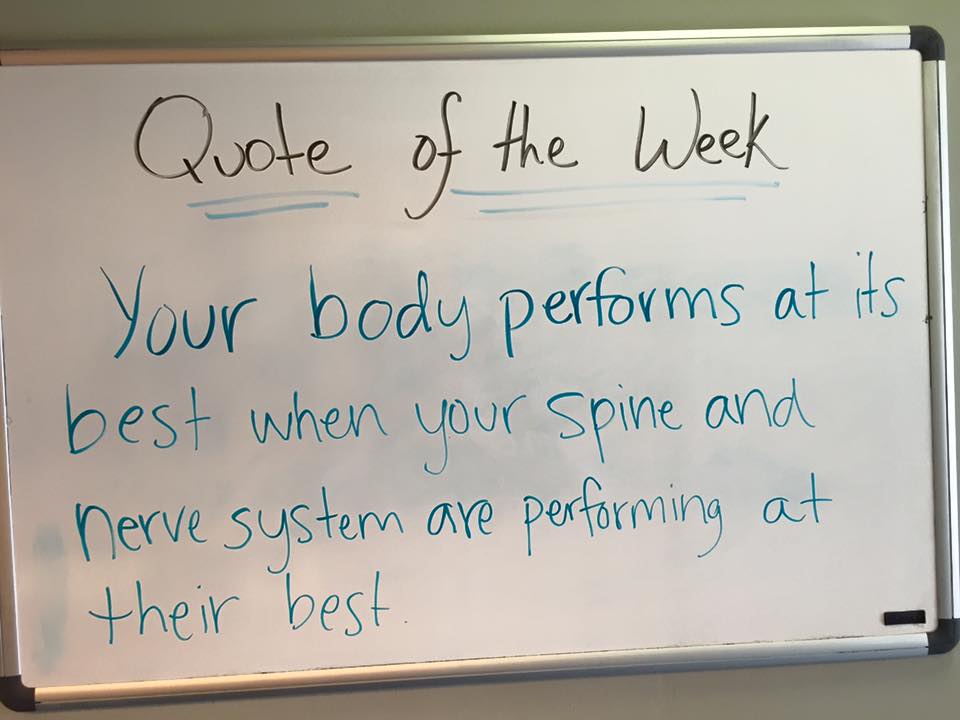 Quote of the Week
Your body performs at its
best when your spine and
nerve system are performing at
their best.